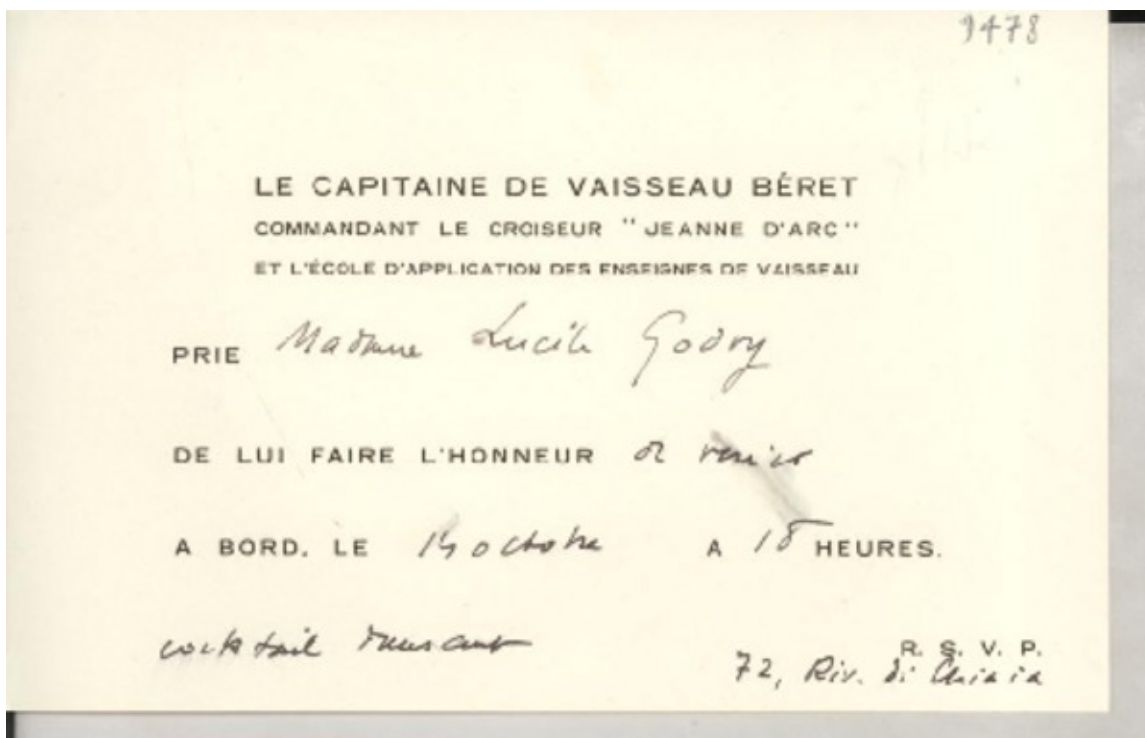 9478
LE CAPITAINE DE VAISSEAU BÉRET
COMMANDANT LE CROISEUR "JEANNE D'ARC"
ET L'ÉCOLE D'APPLICATION DES ENSEIGNES DE VAISSEAU
PRIE Madame Lucile
DE LUI FAIRE L'HONNEUR de venir
A BORD. LE octobre A 18 HEURES.
cocktail dansant
R. S. V. P.
72, Riv. di Chiaia